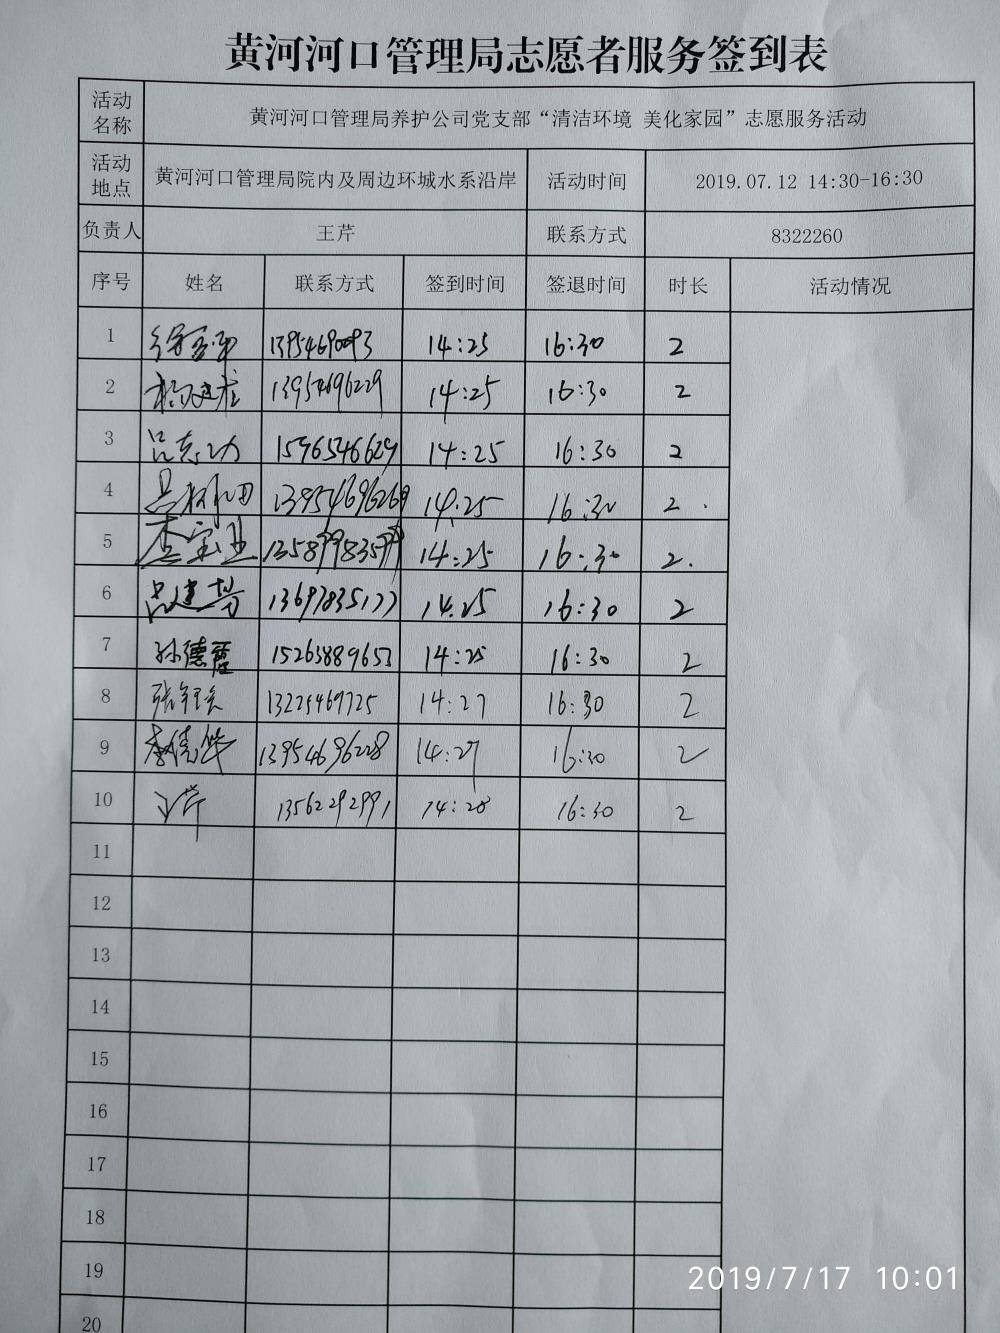 黄河河口管理局志愿者服务签到表
活动名称 黄河河口管理局养护公司党支部“清洁环境 美化家园”志愿服务活动
活动地点 黄河河口管理局院内及周边环城水系沿岸 活动时间 2019.07.12 14:30-16:30
负责人 王芹 联系方式 8322260
序号 姓名 联系方式 签到时间 签退时间 时长 活动情况
1 13954690093 14:25 16:30 2
2 13954696229 14:25 16:30 2
3 吕志功 1596546629 14:25 16:30 2
4 13954696269 14:25 16:30 2
5 李宝玉 14:25 16:30 2
6 吕建芳 13697835177 14:25 16:30 2
7 孙德霞 15263889653 14:25 16:30 2
8 13225469725 14:27 16:30 2
9 13954696228 14:27 16:30 2
10 王芹 13562292991 14:28 16:30 2
11
12
13
14
15
16
17
18
19
20
2019/7/17 10:01